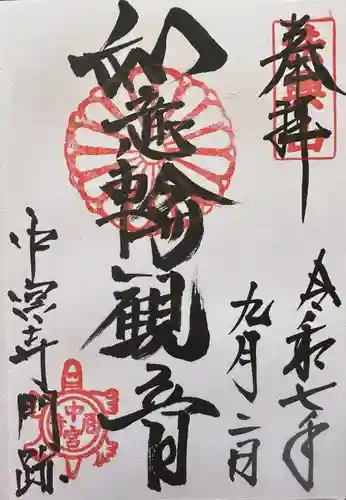 奉拝
令和七年
九月二日
如意輪観音
中宮寺門跡
中宮